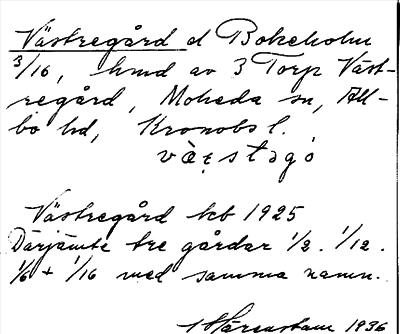 Västregård d Bokeholm
3/16, hmd av 3 Torp Väst-
regård, Moheda sn, All-
bo hd, Kronobs l.
Västregård tcb 1925
Därjämte tre gårdar 1/2. 1/12.
1/6 + 1/16 med samma namn.
Härenstam 1936